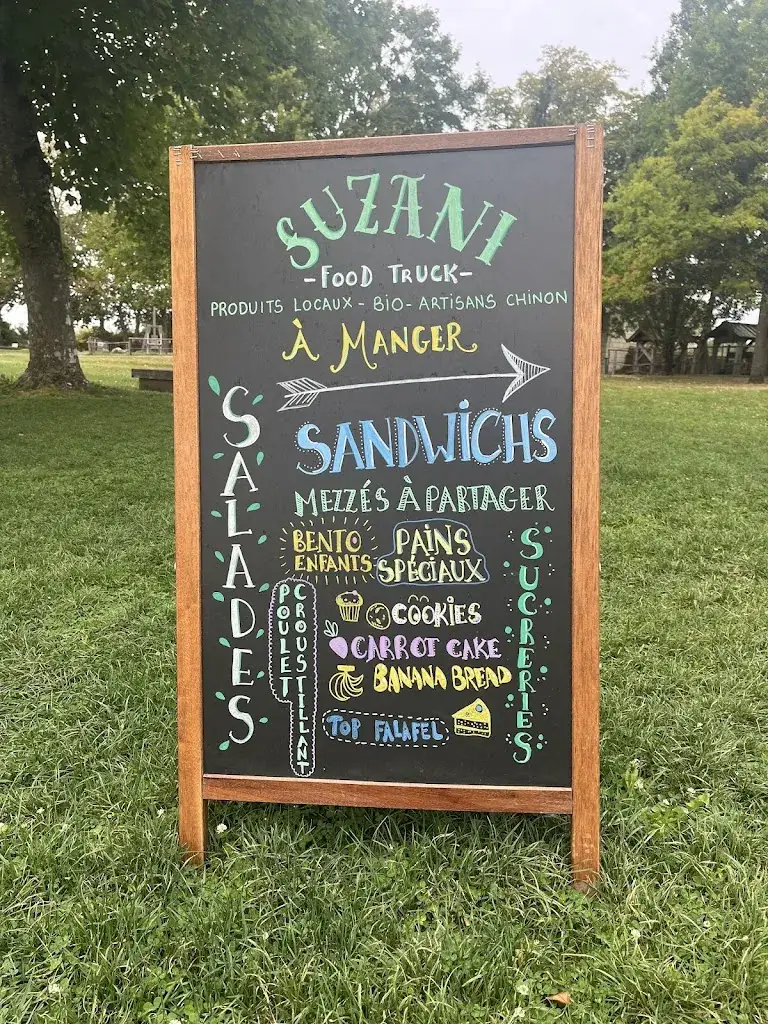 SUZANI
-FOOD TRUCK-
PRODUITS LOCAUX - BIO - ARTISANS CHINON
À MANGER
SALADES
SANDWICHS
MEZZÉS À PARTAGER
BENTO
ENFANTS
PAINS
SPÉCIAUX
POULET
CROUSTILLANT
COOKIES
CARROT CAKE
BANANA BREAD
TOP FALAFEL
SUCRERIES